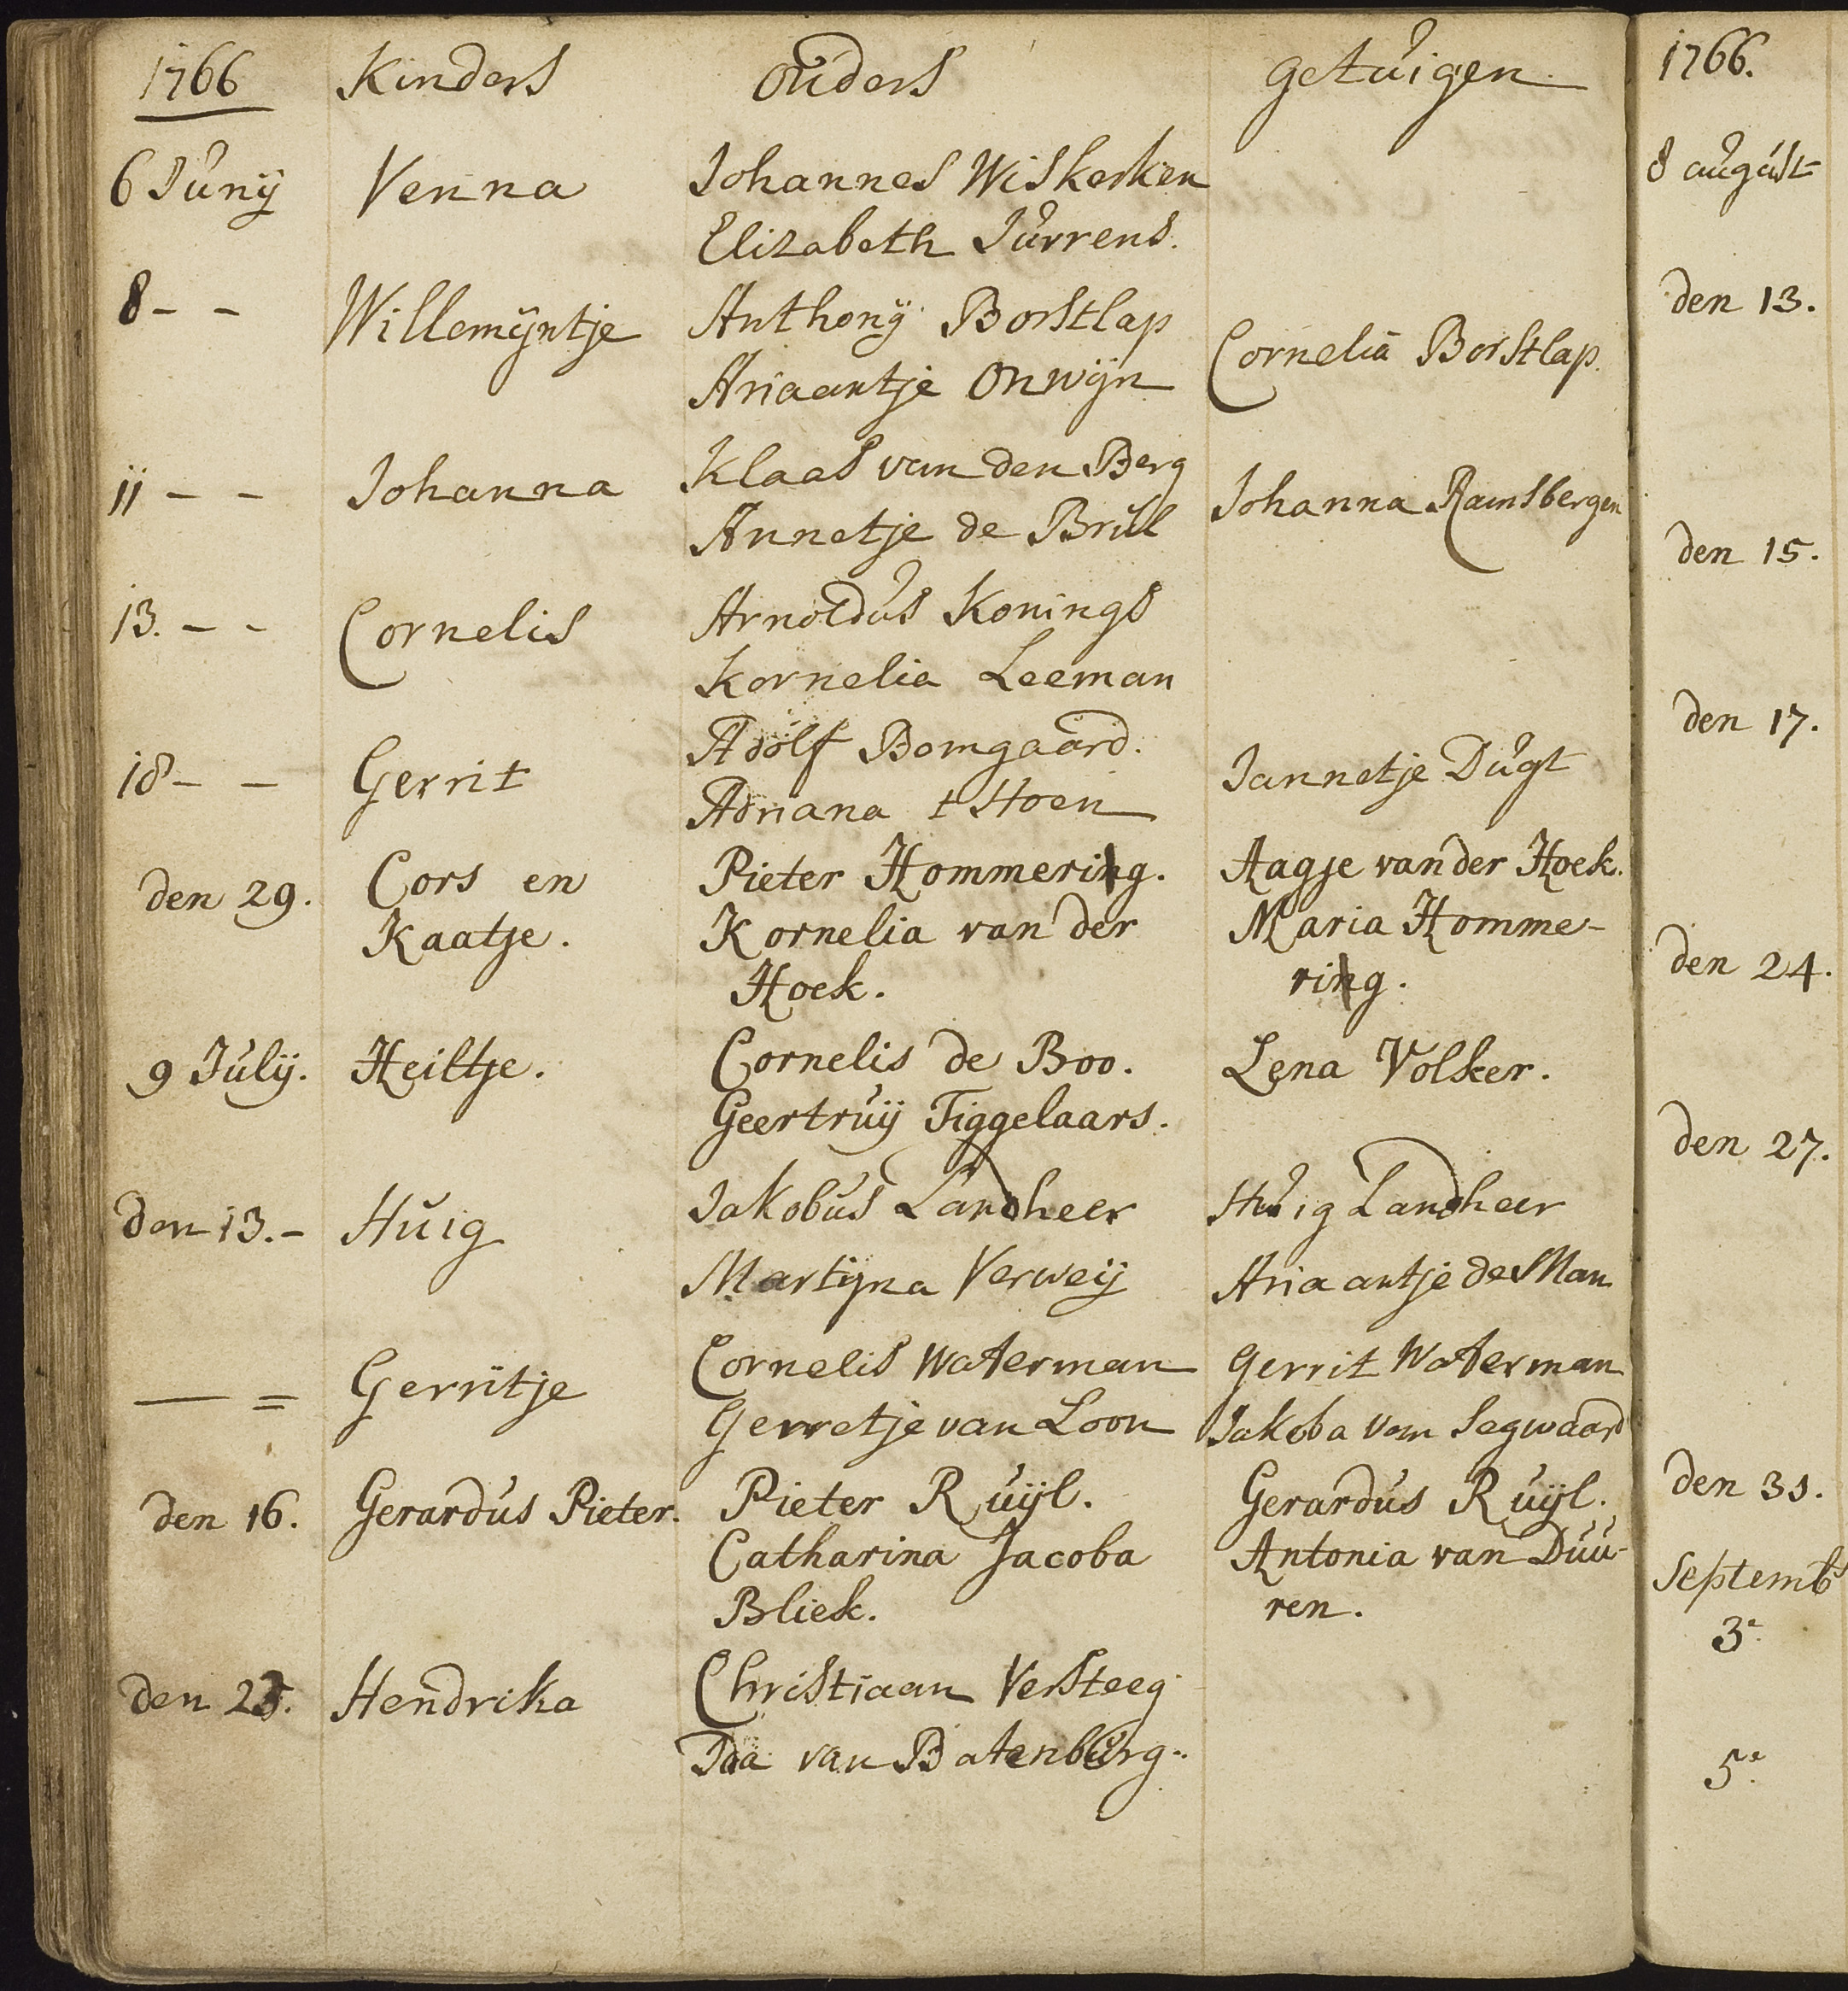 1766 Kinders Ouders getuigen
6 Junij Venna Johannes Wiskerken
Elizabeth Jurrens.
8 - - Willemijntje Anthonij Borstlap Cornelia Borstlap.
Ariaantje Onwijn
11 - - Johanna Klaas van den Berg Johanna Ramsbergen
Annetje de Brul
13. - - Cornelis Arnoldus Konings
Kornelia Leeman
18 - - Gerrit Adolf Bomgaard. Jannetje Dugt
Adriana t Hoen
den 29. Cors en Pieter Hommering. Aagje van der Hoek.
Kaatje. Kornelia van der Maria Homme-
Hoek. ring.
9 Julij. Heiltje. Cornelis de Boo. Lena Volker.
Geertruij Tiggelaars.
den 13. - Huig Jakobus Landheer Huig Landheer
Martijna Verweij Ariaantje de Man
— = Gerritje Cornelis Waterman Gerrit Waterman
Gerretje van Loon Jakoba van Segwaard
den 16. Gerardus Pieter. Pieter Ruijl. Gerardus Ruijl.
Catharina Jacoba Antonia van Duu-
Bliek. ren.
den Hendrika Christiaan Versteeg
Ida van Batenburg.
1766.
8 august
den 13.
den 15.
den 17.
den 24.
den 27.
den 31.
Septemb
3.
5.